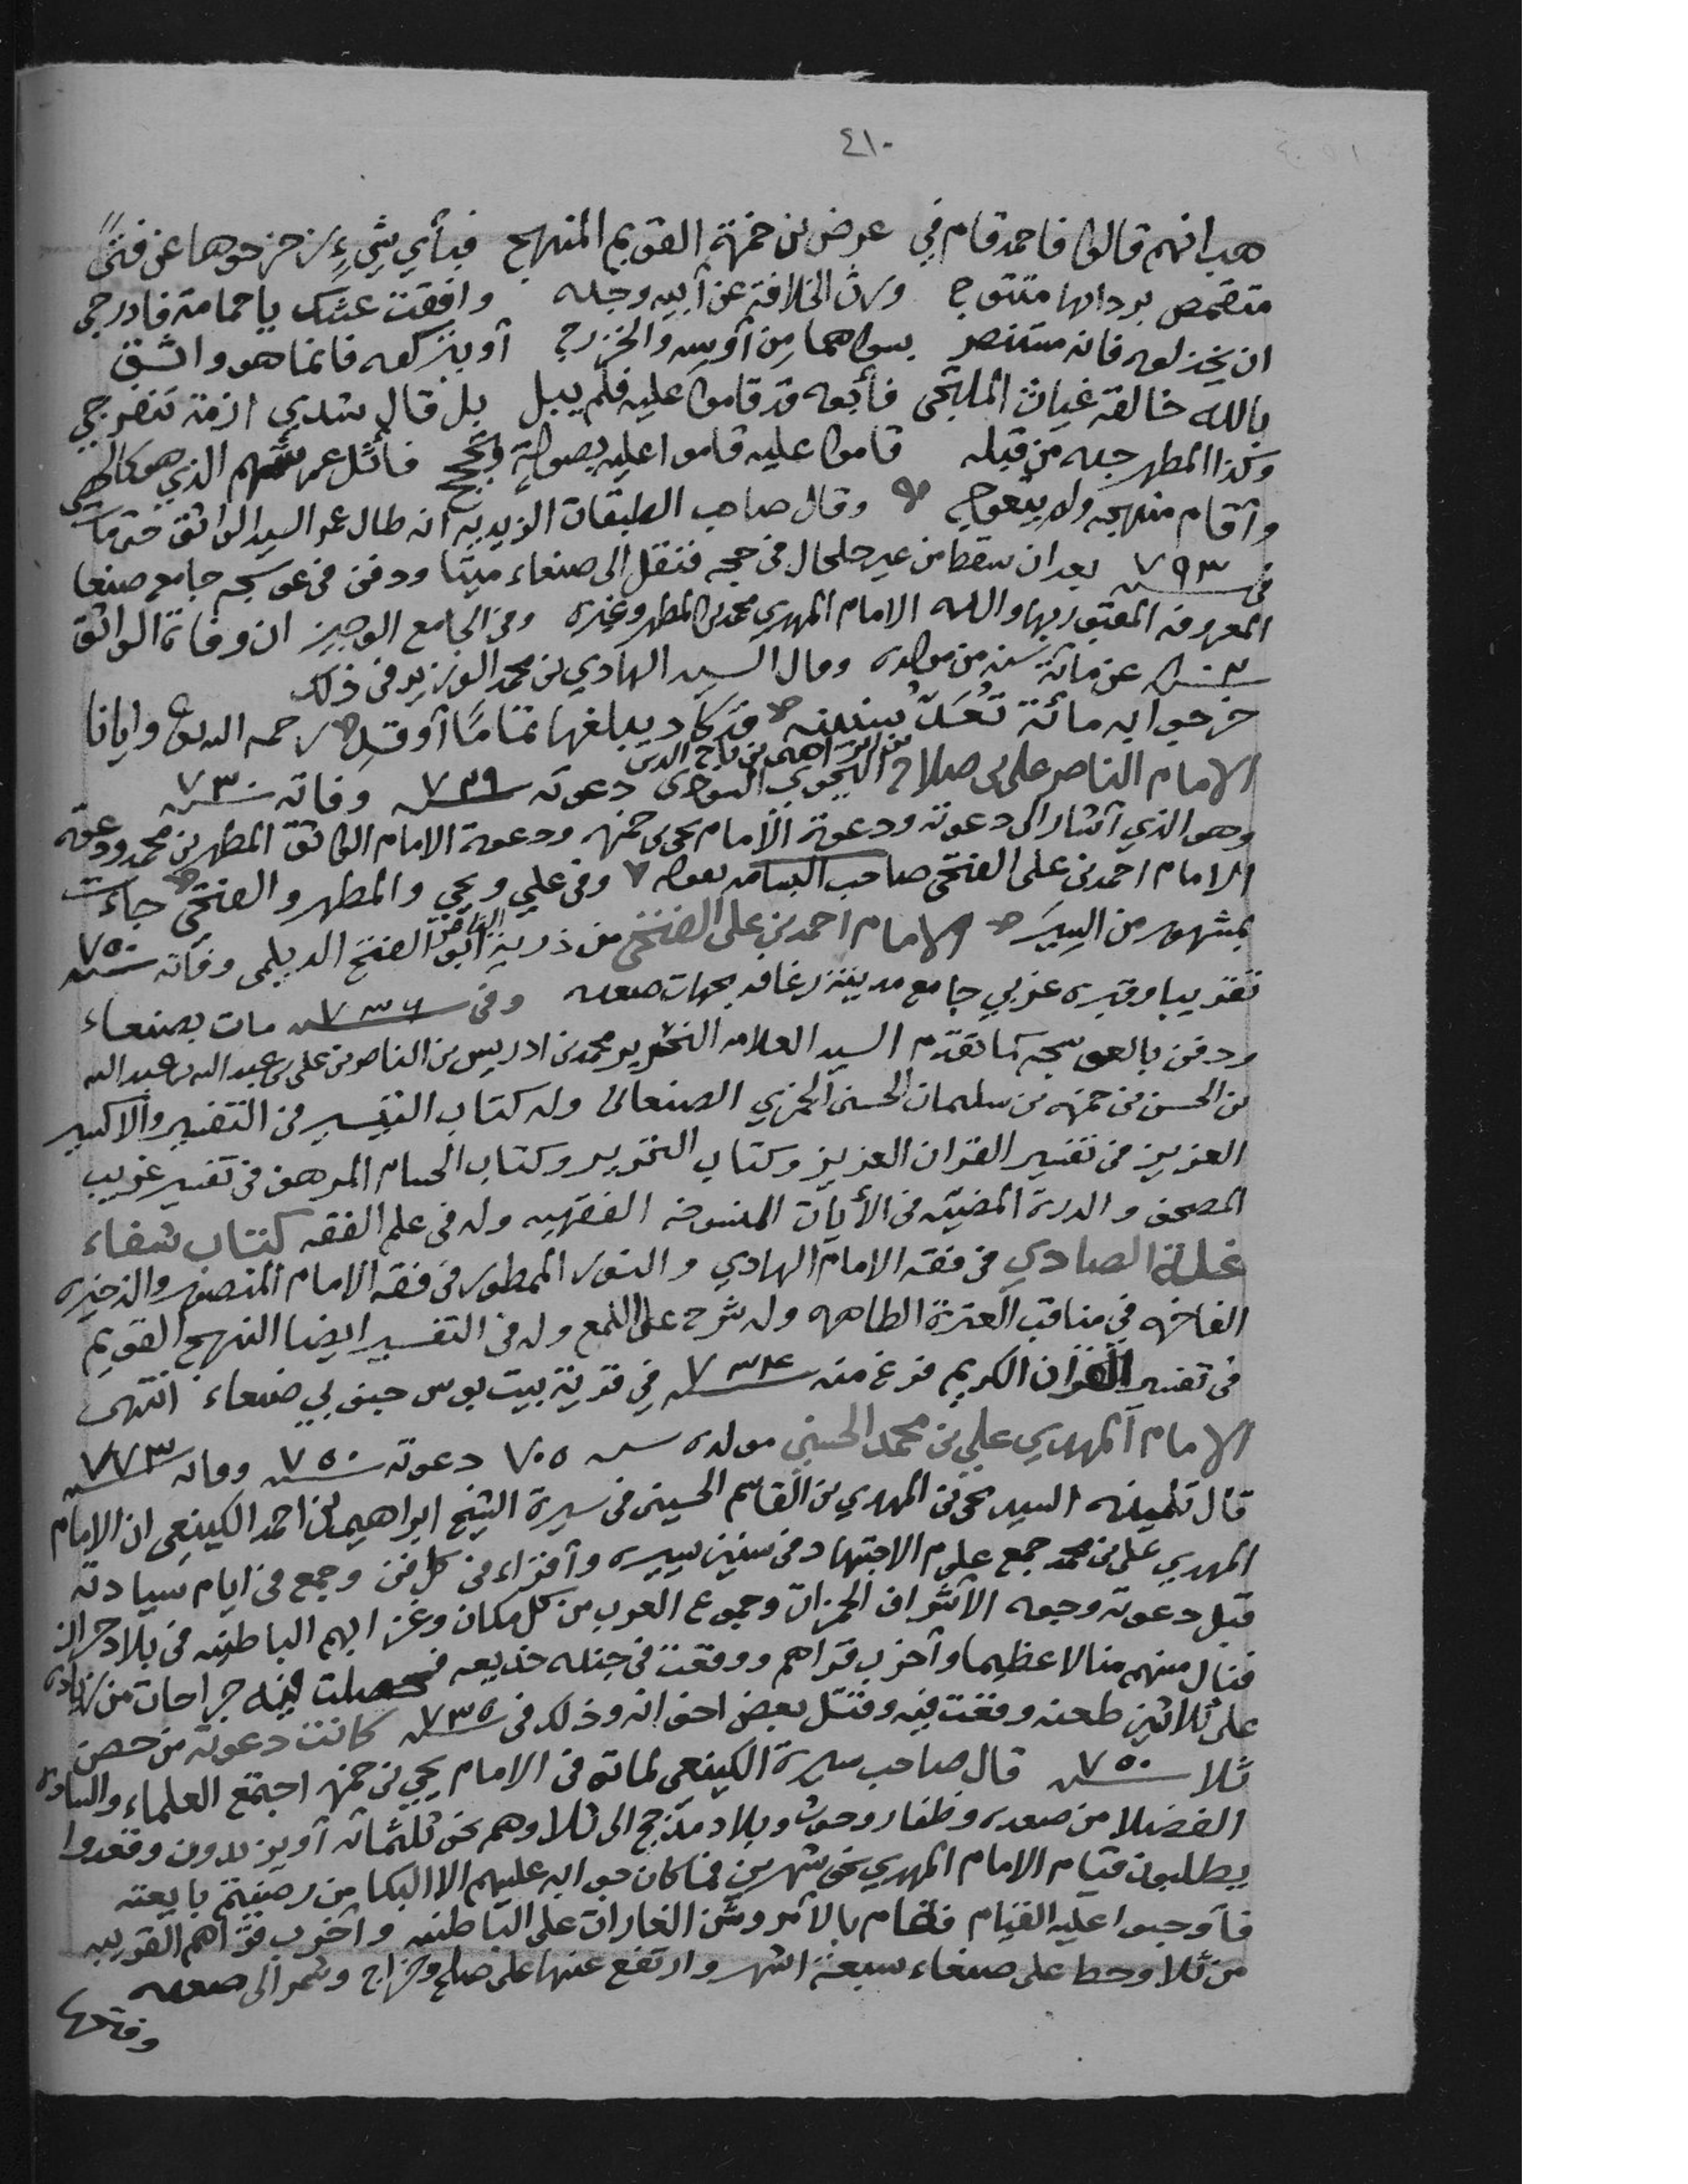 ٤١٠
هب انهم قالوا فاحمد قام في عرض بن حمزة القويم المنهج فبأي شيء زحزحوها عن فتىً
متقمص بردائها متتوج ورث الخلافة عن أبيه وجده وافقت عشك يا حمامة فادرجي
ان يخذلوه فانه مستنصر بسواهما من أوسه والخزرج أو يتركوه فانما هو واثق
بالله خالقه غياث الملتجى فأبوه قد قاموا عليه فلم يبل بل قال شدي ازمة تنفرجي
وكذا المطهر جده من قبله قاموا عليه قاموا عليه بصولة وتحجج الذي هو
وأقام منهجه ولم يتعوج وقال صاحب الطبقات الزيديه انه طال عمر السيد الواثق حتى مات
في سنة ٧٩٣ بعد ان سقط من في حجه فنقل الى صنعاء ميتا ودفن في عوسجه جامع صنعا
المعروفه المقبور بها والده الامام المهدي محمد بن المطهر وغيره وفي الجامع الوجيز ان وفاة الواثق
عن مائة سنه من مولده وقال السيد الهادي بن محمد الوزير في ذلك
مائة تعد سنينه قد كاد يبلغها تماما أو قد رحمه الله وايانا
الامام الناصر علي بن صلاح بن ابراهيم بن تاج الدين اليحيوي الهادوي دعوته سنة ٧٢٩ وفاته سنة ٧٣٠
وهو الذي أشار الى دعوته ودعوة الامام يحيى بن حمزه ودعوة الامام الواثق المطهر بن محمد ودعوة
الامام احمد بن علي الفتحي صاحب البسامه بقوله وفي علي ويحيى والمطهر والفتحي جاءت
بمشهور من السير الامام احمد بن علي الفتحي من ذرية الناصر أبو الفتح الديلمي وفاته سنة ٧٥٠
تقريبا وقبره غربي جامع مدينة رغافه بجهات صعده وفي سنة ٧٣٦ مات بصنعاء
ودفن بالعوسجه كما تقدم السيد العلامه النحرير محمد بن ادريس بن الناصر بن علي بن عبدالله بن عبدالله
بن الحسن بن حمزه بن سليمان الحسني الحمزي الصنعاني وله كتاب التيسير في التفسير والاكسير
العزيز في تفسير القران العزيز وكتاب التحرير وكتاب الحسام المرهف في تفسير غريب
المصحف والدرة المضيّه في الأيات المنسوخه الفقهيه وله في علم الفقه كتاب شفاء
غلة الصادي في فقه الامام الهادي والنور الممطور في فقه الامام المنصور والذخيره
الفاخره في مناقب العترة الطاهره وله شرح على اللمع وله في التفسير ايضا النهج القويم
في تفسير القران الكريم فرغ منه سنة ٧٣٤ في قرية بيت بوس جنوبي صنعاء انتهى
الامام المهدي علي بن محمد الحسني مولده سنه ٧٠٥ دعوته سنة ٧٥٠ وفاته سنة ٧٧٣
قال تلميذه السيد يحيى بن المهدي بن القاسم الحسيني في سيرة الشيخ ابراهيم بن احمد الكينعي ان الامام
المهدي علي بن محمد جمع علوم الاجتهاد في سنين يسيره وأقراء في كل فن وجمع في ايام سيادته
قبل دعوته وجوه الأشراف الحمزات وجموع العرب من كل مكان وغزا بهم الباطنيه في بلاد حراز
فنال منهم منالا عظيما وأخرب قراهم ووقعت في جنده خديعه فحصلت فيه جراحات من زياده
على ثلاثين طعنه وقعت فيه وقتل بعض اخوانه وذلك في سنة ٧٣٥ كانت دعوته من حصن
ثلا سنة ٧٥٠ قال صاحب سيرة الكينعي لما توفى الامام يحيى بن حمزه اجتمع العلماء والساده
الفضلا من صعده وظفار وحوث وبلاد مذحج الى ثلا وهم نحو ثلثمائه أو يزيدون وقعدوا
يطلبون قيام الامام المهدي نحو شهرين فما كان جوابه عليهم الا البكا من بايعته
فأوجبوا عليه القيام فقام بالأمر وشن الغارات على الباطنيه وأخرب قراهم القريبه
من ثلا وحط على صنعاء سبعة اشهر وارتفع عنها على صلح وخراج وشمر الى صعده